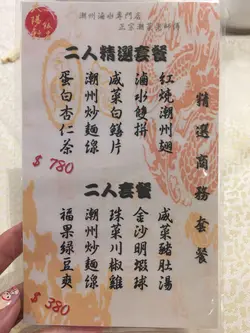 潮州滷水專門店
正宗潮菜老師傅
精選商務套餐
二人精選套餐
紅燒潮州翅
滷水雙拼
咸菜白鱔片
潮州炒麵線
蛋白杏仁茶
$780
二人套餐
咸菜豬肚湯
金沙明蝦球
珠菜川椒雞
潮州炒麵線
福果綠豆爽
$380